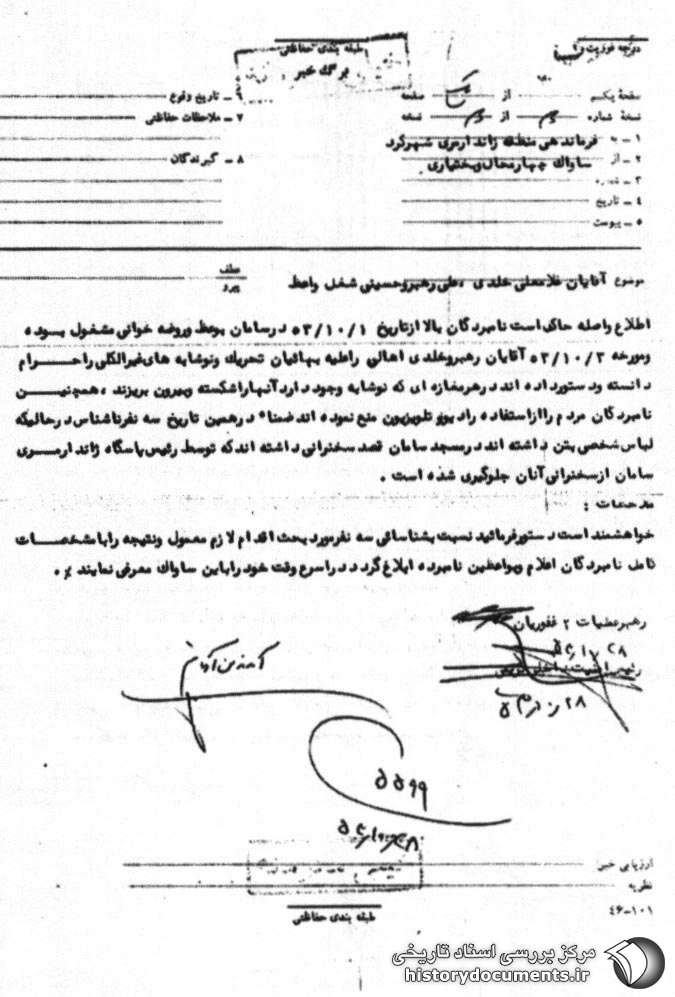 درجه فوریت
طبقه بندی حفاظتی
برگ خبر
صفحه یکم از یک صفحه
نسخه شماره دوم از دوم نسخه
۱ ـ به فرماندهی منطقه ژاندارمری شهرکرد
۲ ـ از ساواک چهارمحال و بختیاری
۳ ـ شماره
۴ ـ تاریخ
۵ ـ پیوست
۶ ـ تاریخ وقوع
۷ ـ ملاحظات حفاظتی
۸ ـ گیرندگان
عطف
پیرو
موضوع آقایان غلامعلی خلدی ، علی رهبر و حسینی شغل واعظ
اطلاع واصله حاکی است نامبردگان بالا از تاریخ ۵۳/۱۰/۱ در سامان بوعظ و روضه خوانی مشغول بوده
و مورخه ۵۳/۱۰/۳ آقایان رهبر و خلدی اهالی را علیه بهائیان تحریک و نوشابه های غیر الکلی را حرام
دانسته و دستور داده اند در هر مغازه ای که نوشابه وجود دارد آنها را شکسته و بیرون بریزند ، همچنین
نامبردگان مردم را از استفاده رادیو و تلویزیون منع نموده اند ضمنا" در همین تاریخ سه نفر ناشناس در حالیکه
لباس شخصی بتن داشته اند در مسجد سامان قصد سخنرانی داشته اند که توسط رئیس پاسگاه ژاندارمری
سامان از سخنرانی آنان جلوگیری شده است .
ملاحظات :
خواهشمند است دستور فرمائید نسبت بشناسائی سه نفر مورد بحث اقدام لازم معمول و نتیجه را با مشخصات
کامل نامبردگان اعلام و بواعظین نامبرده ابلاغ گردد در اسرع وقت خود را باین ساواک معرفی نمایند .
رهبر عملیات ۲ غفوریان
ارزیابی خبر
نظریه
طبقه بندی حفاظتی
۴۶-۱۰۱
مرکز بررسی اسناد تاریخی
historydocuments.ir